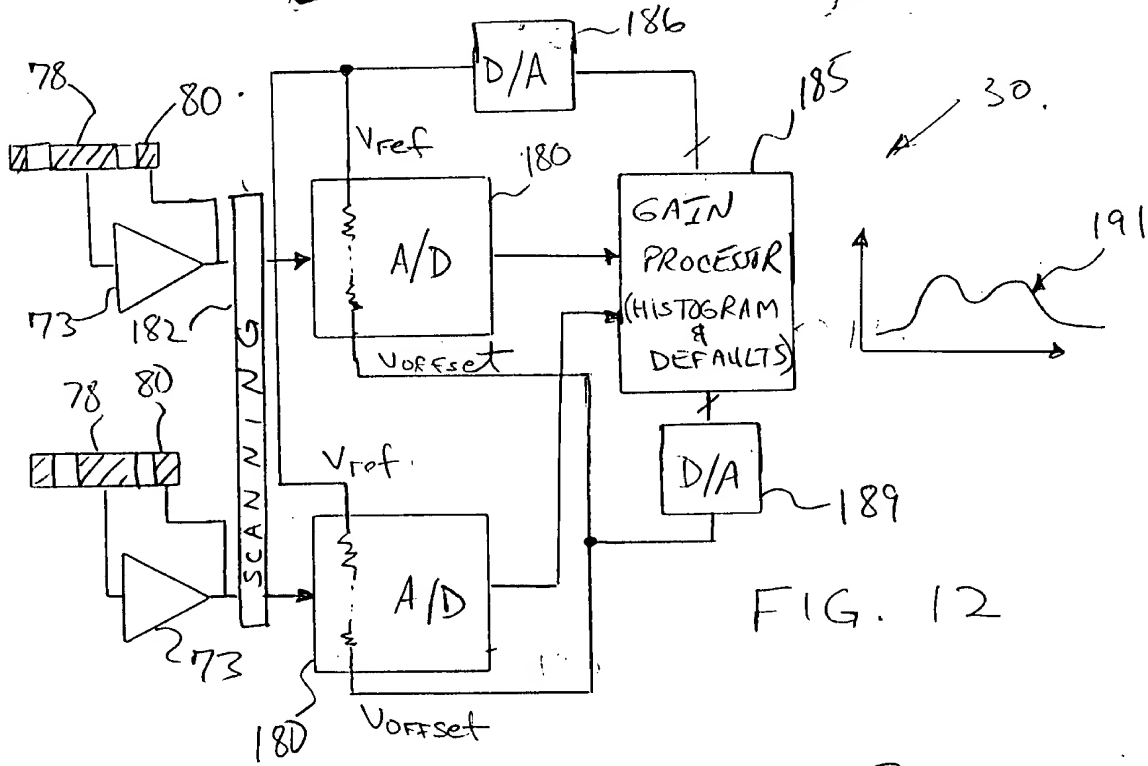 186
D/A
78
80
185
30.
Vref
180
GAIN
PROCESSOR
(HISTOGRAM
&
DEFAULTS)
A/D
191
73
182
SCANNING
VOFFset
78
80
Vref
D/A
189
A/D
FIG. 12
73
180
VOFFset